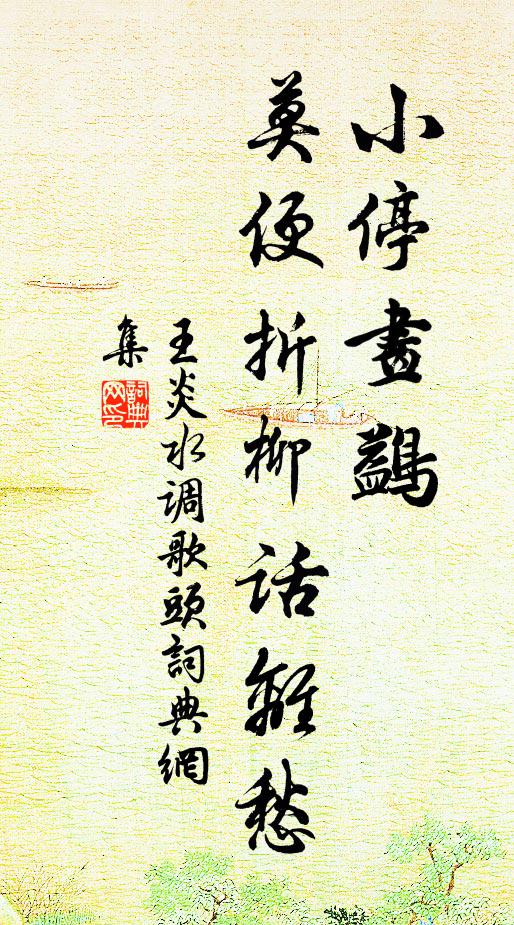 小停畫鷁
莫便折柳話離愁
王炎水调歌頭詞典網
集
詞典网印